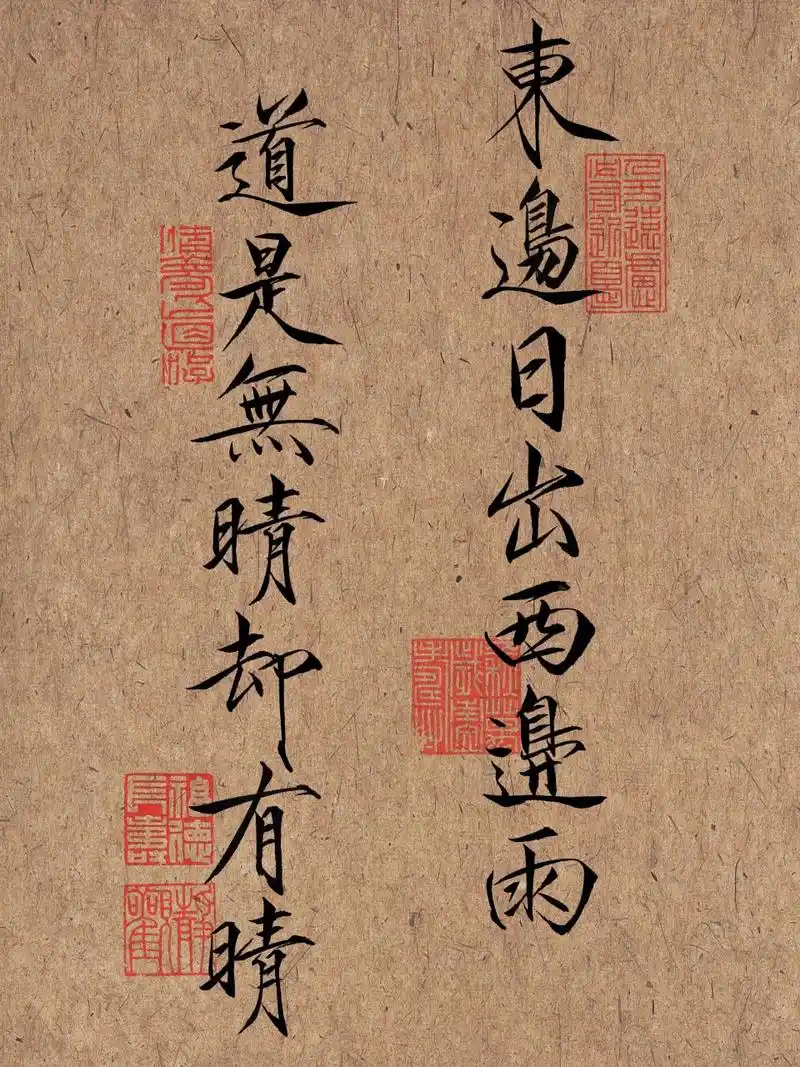 東邊日出西邊雨
道是無晴却有晴